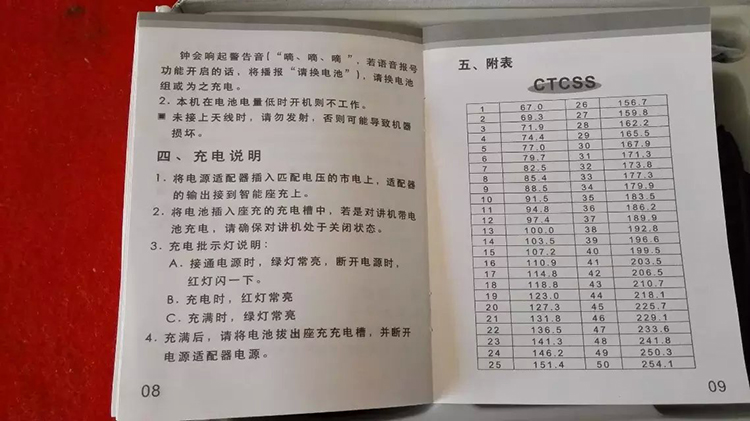 钟会响起警告音(“嘀、嘀、嘀”，若语音报号
功能开启的话，将播报“请换电池”)，请换电池
组或为之充电。
2. 本机在电池电量低时开机则不工作。
■ 未接上天线时，请勿发射，否则可能导致机器
损坏。
四、充电说明
1. 将电源适配器插入匹配电压的市电上，适配器
的输出接到智能座充上。
2. 将电池插入座充的充电槽中，若是对讲机带电
池充电，请确保对讲机处于关闭状态。
3. 充电批示灯说明：
A. 接通电源时，绿灯常亮，断开电源时，
红灯闪一下。
B. 充电时，红灯常亮
C. 充满时，绿灯常亮
4. 充满后，请将电池拔出座充充电槽，并断开
电源适配器电源。
08
五、附表
CTCSS
1 67.0 26 156.7
2 69.3 27 159.8
3 71.9 28 162.2
4 74.4 29 165.5
5 77.0 30 167.9
6 79.7 31 171.3
7 82.5 32 173.8
8 85.4 33 177.3
9 88.5 34 179.9
10 91.5 35 183.5
11 94.8 36 186.2
12 97.4 37 189.9
13 100.0 38 192.8
14 103.5 39 196.6
15 107.2 40 199.5
16 110.9 41 203.5
17 114.8 42 206.5
18 118.8 43 210.7
19 123.0 44 218.1
20 127.3 45 225.7
21 131.8 46 229.1
22 136.5 47 233.6
23 141.3 48 241.8
24 146.2 49 250.3
25 151.4 50 254.1
09